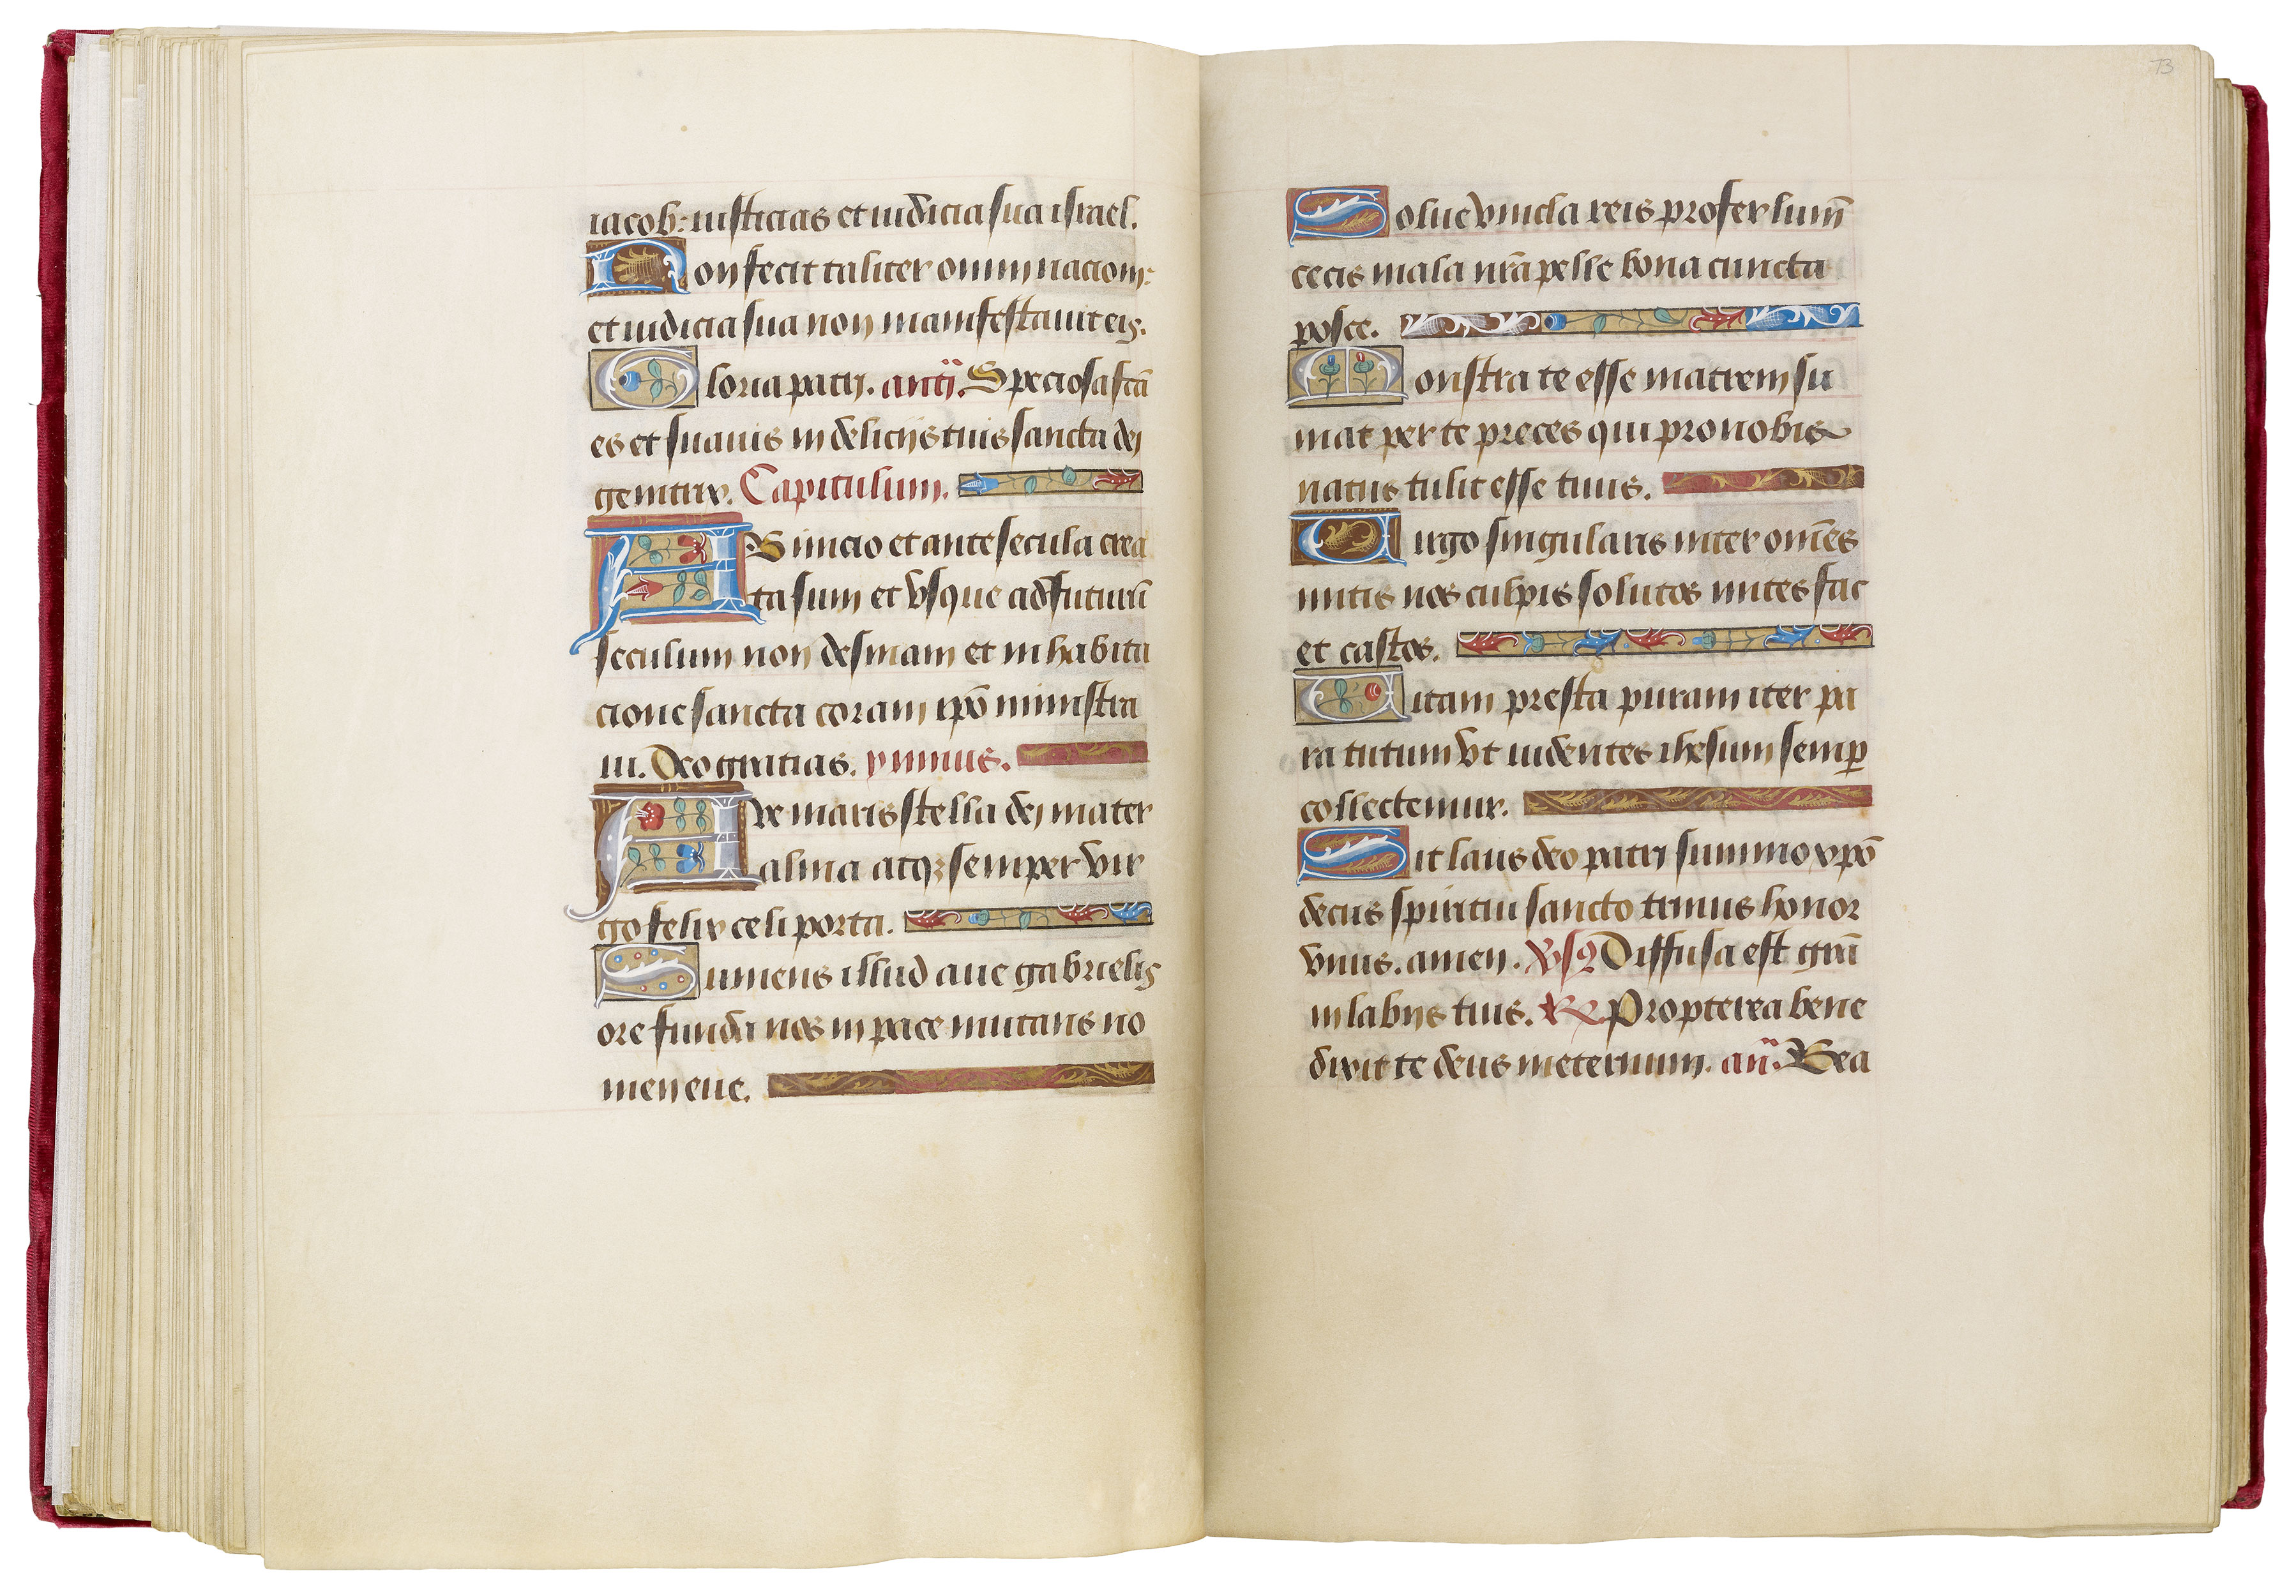 iacob: iusticias et iudicia sua israel.
Non fecit taliter omni nacioni:
et iudicia sua non manifestauit eis.
Gloria patri. antī. Speciosa fc̄ā
es et suauis in deliciis tuis sancta dei
genitrix. Capitulum.
AB inicio et ante secula crea
ta sum et vsque ad futurū
seculum non desinam et in habita
cione sancta coram ipō ministra
ui. Deo gratias. ymnus.
Aue maris stella dei mater
alma atqꝫ semper vir
go felix celi porta.
Sumens illud aue gabrielis
ore funda nos in pace mutans no
men eue.
73
Solue vincla reis profer lumē
cecis mala nr̄a pelle bona cuncta
posce.
Monstra te esse matrem su
mat per te preces qui pro nobis
natus tulit esse tuus.
Uirgo singularis inter om̄es
mitis nos culpis solutos mites fac
et castos.
Uitam presta puram iter pa
ra tutum vt uidentes ihesum semꝑ
collectemur.
Sit laus deo patri summo xpō
decus spiritui sancto trinus honor
vnus. amen. Vsꝰ Diffusa est grā
in labiis tuis. ℞ Propterea bene
dixit te deus in eternum. añ. Bea